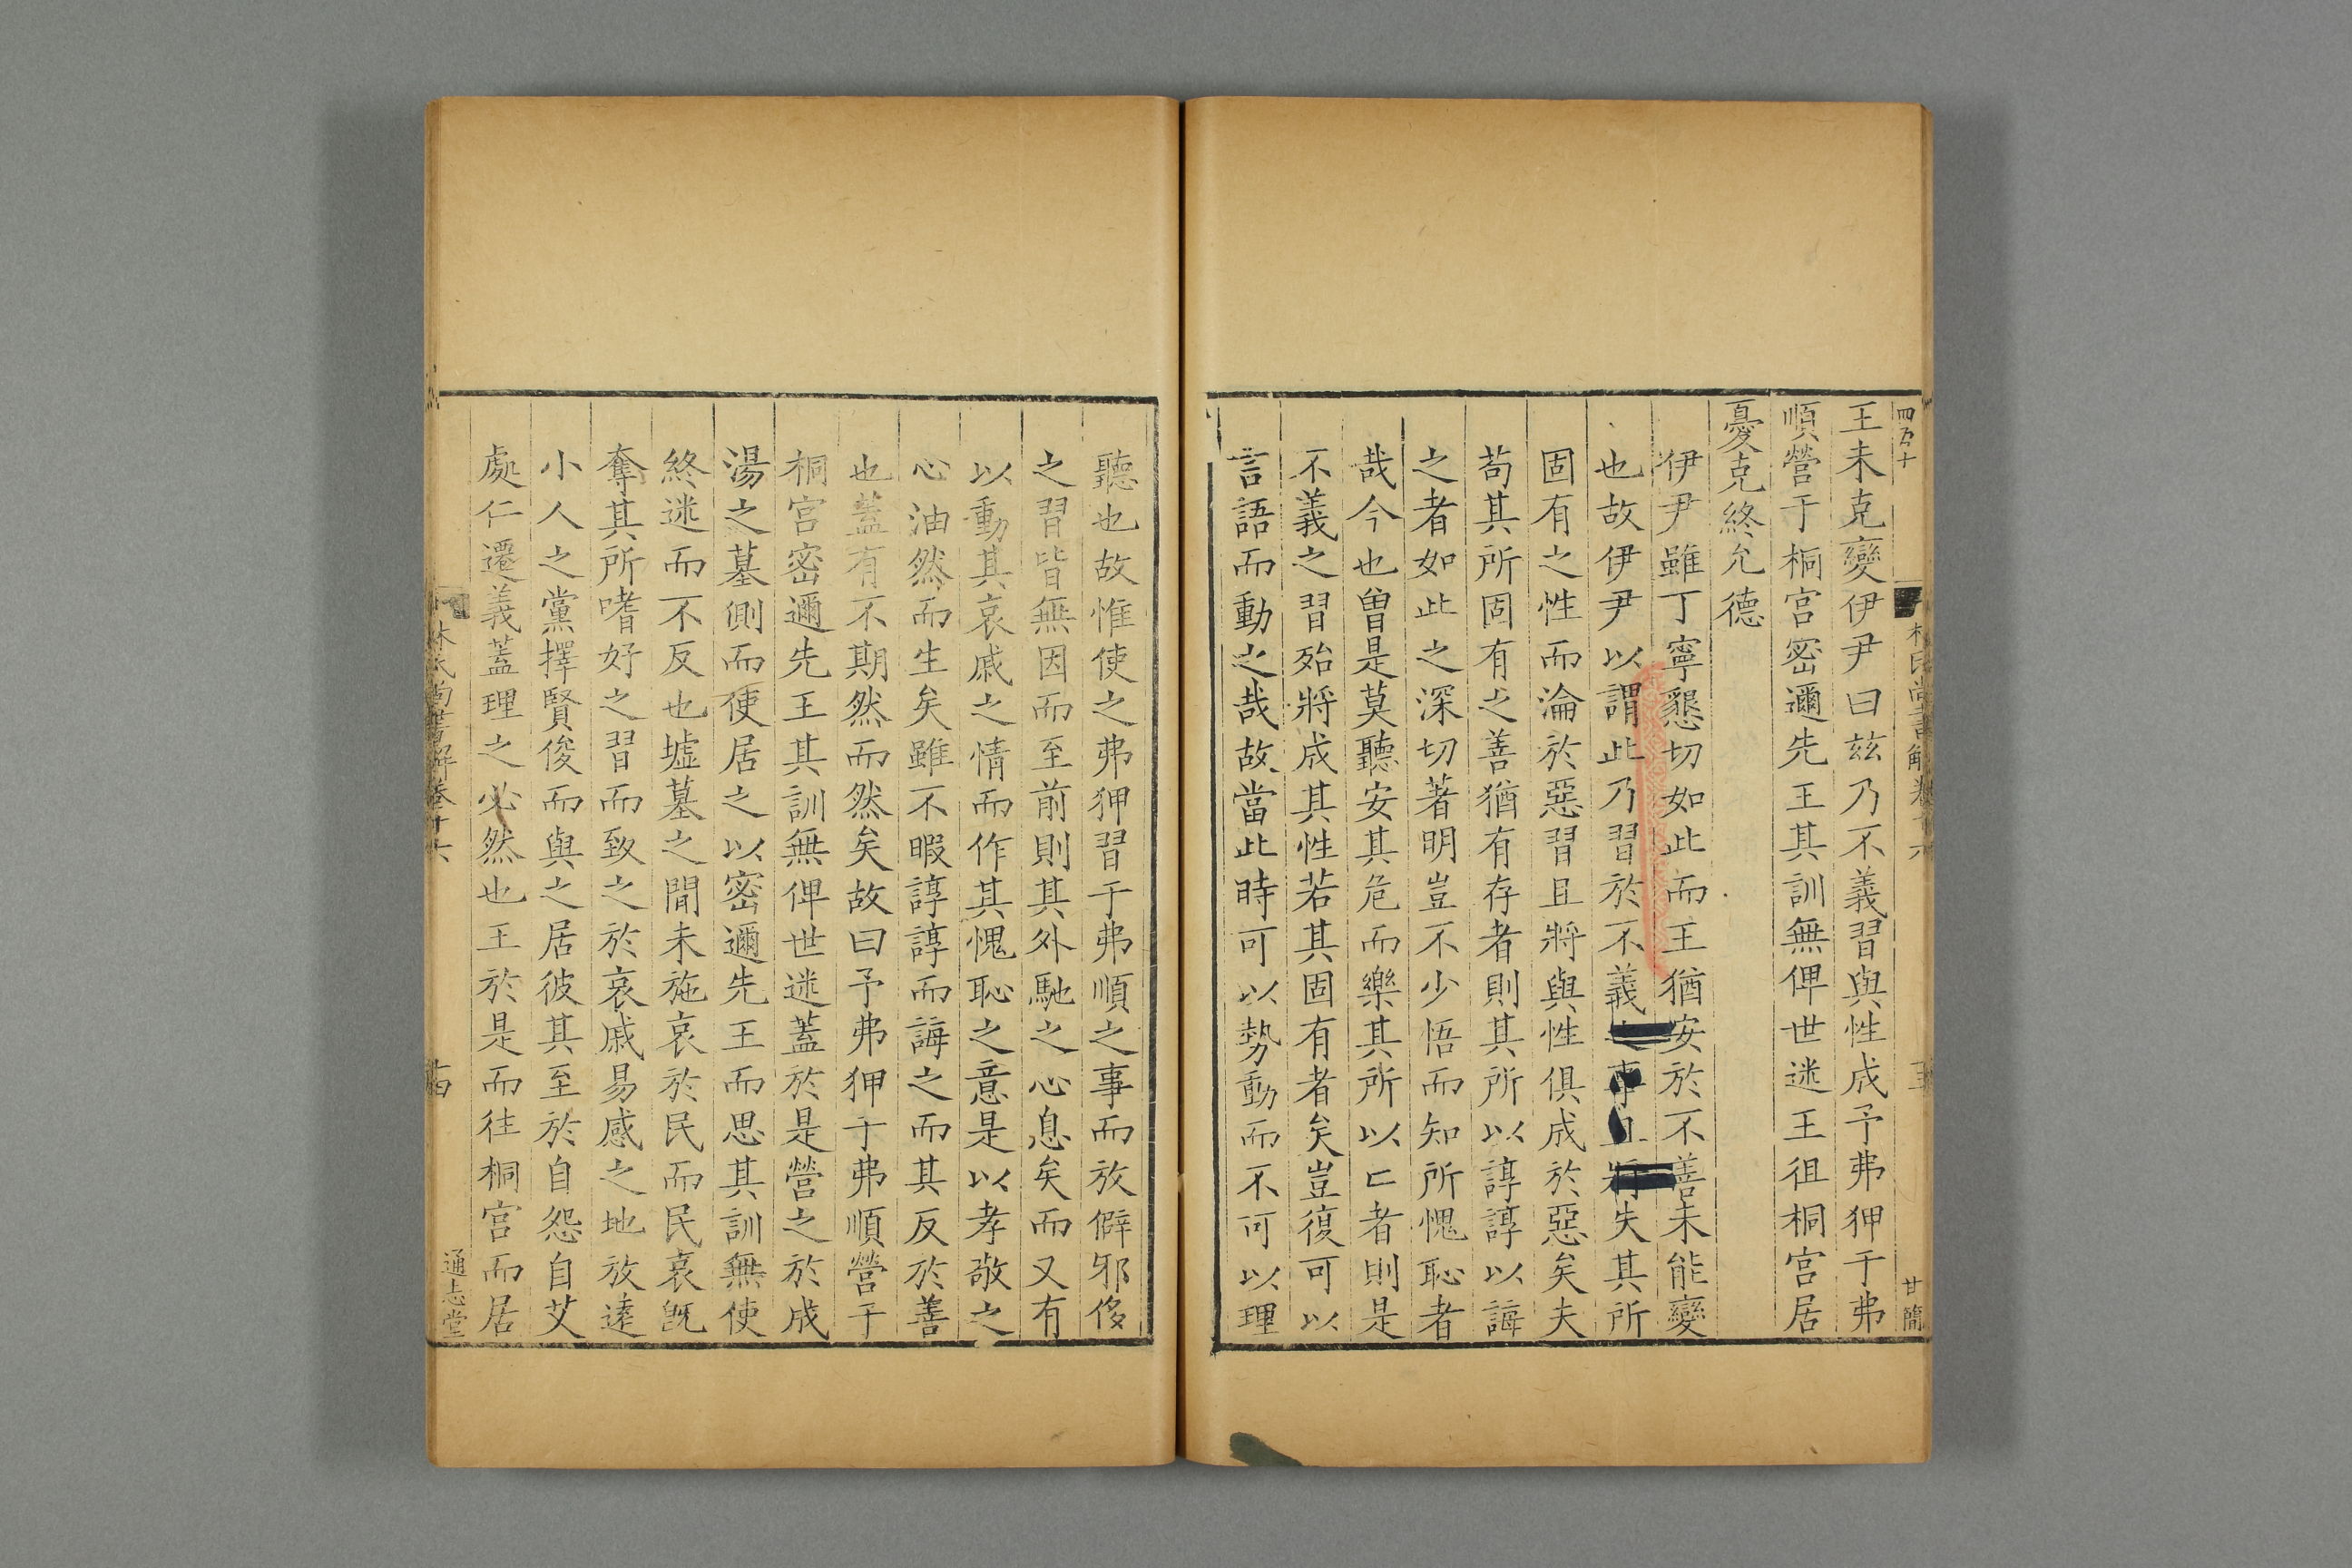 王未克變伊尹曰茲乃不義習與性成予弗狎于弗
順營于桐宮密邇先王其訓無俾世迷王徂桐宮居
憂克終允德
伊尹雖丁寧懇切如此而王猶安於不善未能變
也故伊尹以謂此乃習於不義事且將失其所
固有之性而淪於惡習且將與性俱成於惡矣夫
苟其所固有之善猶有存者則其所以諄諄以誨
之者如此之深切著明豈不少悟而知所愧恥者
哉今也曾是莫聽安其危而樂其所以亡者則是
不義之習殆將成其性若其固有者矣豈復可以
言語而動之哉故當此時可以勢動而不可以理
聽也故惟使之弗狎習于弗順之事而放僻邪侈
之習皆無因而至前則其外馳之心息矣而又有
以動其哀戚之情而作其愧恥之意是以孝敬之
心油然而生矣雖不暇諄諄而誨之而其反於善
也蓋有不期然而然矣故曰予弗狎于弗順營于
桐宮密邇先王其訓無俾世迷蓋於是營之於成
湯之墓側而使居之以密邇先王而思其訓無使
終迷而不反也墟墓之間未施哀於民而民哀既
奪其所嗜好之習而致之於哀戚易感之地放遠
小人之黨擇賢俊而與之居彼其至於自怨自艾
處仁遷義蓋理之必然也王於是而往桐宮而居
林氏尚書解卷十六
通志堂
四百十
林氏尚書解卷十六
甘簡